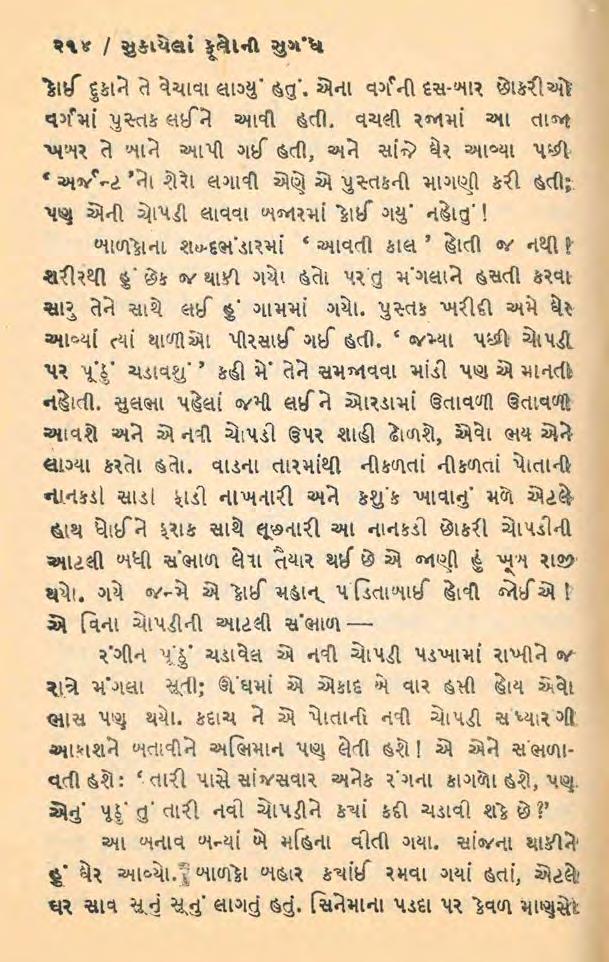 ૨૧૪ / સુકાયેલાં ફૂલોની સુગંધ
કોઈ દુકાને તે વેચાવા લાગ્યું હતું. એના વર્ગની દસ-બાર છોકરીઓ
વર્ગમાં પુસ્તક લઈને આવી હતી. વચલી રજામાં આ તાજા
ખબર તે બાને આપી ગઈ હતી, અને સાંજે ઘેર આવ્યા પછી
‘અર્જન્ટ’નો શેરો લગાવી એણે એ પુસ્તકની માગણી કરી હતી;
પણ એની ચોપડી લાવવા બજારમાં કોઈ ગયું નહોતું!
બાળકોના શબ્દભંડારમાં ‘આવતી કાલ’ હોતી જ નથી!
શરીરથી હું છેક જ થાકી ગયો હતો પરંતુ મંગલાને હસતી કરવા
સારુ તેને સાથે લઈ હું ગામમાં ગયો. પુસ્તક ખરીદી અમે ઘેર
આવ્યાં ત્યાં થાળીઓ પીરસાઈ ગઈ હતી. ‘જમ્યા પછી ચોપડી
પર પૂંઠું ચડાવશું’ કહી મેં તેને સમજાવવા માંડી પણ એ માનતી
નહોતી. સુલભા પહેલાં જમી લઈને ઓરડામાં ઉતાવળી ઉતાવળી
આવશે અને એ નવી ચોપડી ઉપર શાહી ઢોળશે, એવો ભય એને
લાગ્યા કરતો હતો. વાડના તારમાંથી નીકળતાં નીકળતાં પોતાની
નાનકડી સાડી ફાડી નાખનારી અને કશુંક ખાવાનું મળે એટલે
હાથ ધોઈને ફરાક સાથે લૂછનારી આ નાનકડી છોકરી ચોપડીની
આટલી બધી સંભાળ લેવા તૈયાર થઈ છે એ જાણી હું ખૂબ રાજી
થયો. ગયે જન્મે એ કોઈ મહાન્ પંડિતાબાઈ હોવી જોઈએ!
એ વિના ચોપડીની આટલી સંભાળ —
રંગીન પૂંઠું ચડાવેલ એ નવી ચોપડી પડખામાં રાખીને જ
રાત્રે મંગલા સૂતી; ઊંઘમાં એ એકાદ બે વાર હસી હોય એવો
ભાસ પણ થયો. કદાચ ને એ પોતાની નવી ચોપડી સંધ્યારંગી
આકાશને બતાવીને અભિમાન પણ લેતી હશે! એ એને સંભળા-
વતી હશે: ‘તારી પાસે સાંજસવાર અનેક રંગના કાગળો હશે, પણ
એનું પૂઠું તું તારી નવી ચોપડીને કયાં કદી ચડાવી શકે છે?’
આ બનાવ બન્યાં બે મહિના વીતી ગયા. સાંજના થાકીને
હું ઘેર આવ્યો. બાળકો બહાર કયાંઈ રમવા ગયાં હતાં, એટલે
ઘર સાવ સૂનું સૂનું લાગતું હતું. સિનેમાના પડદા પર કેવળ માણસો